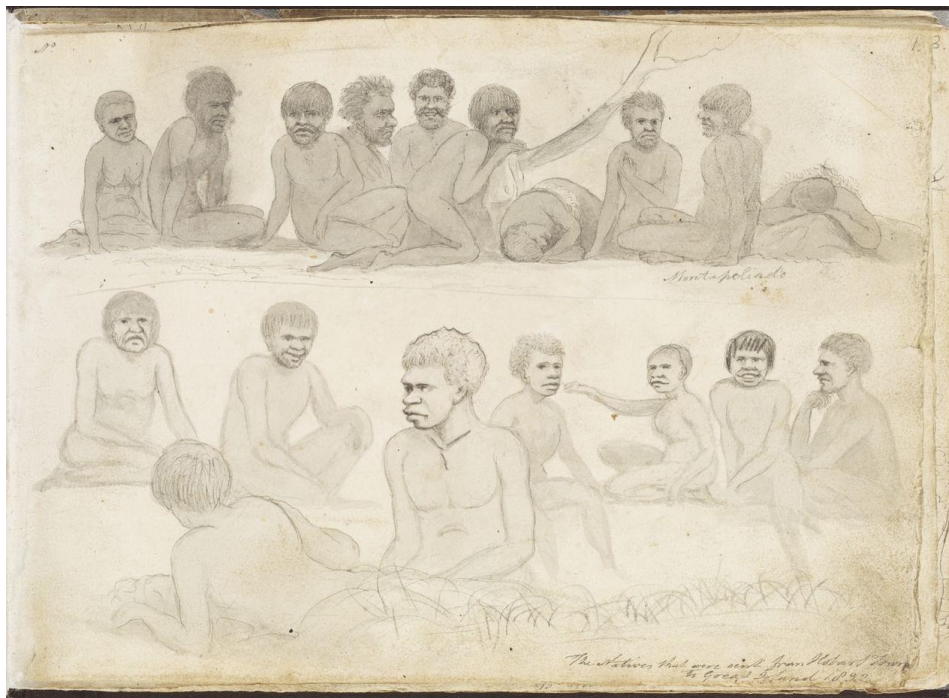 No
1. 3
Montapeliado
The Natives that were sent from Hobart Town
to Great Island 1832